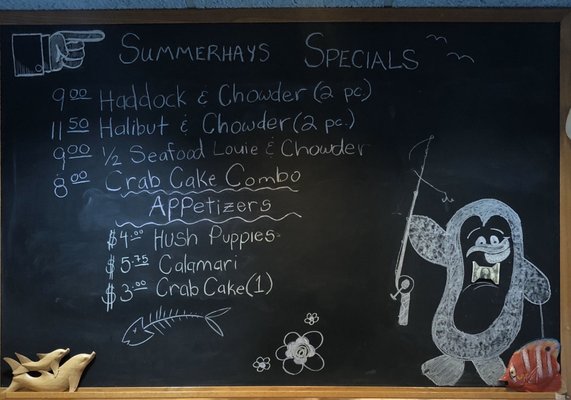 Summerhays Specials
9.00 Haddock & Chowder (2 pc.)
11.50 Halibut & Chowder (2 pc.)
9.00 1/2 Seafood Louie & Chowder
8.00 Crab Cake Combo
Appetizers
$4.00 Hush Puppies
$5.75 Calamari
$3.00 Crab Cake (1)